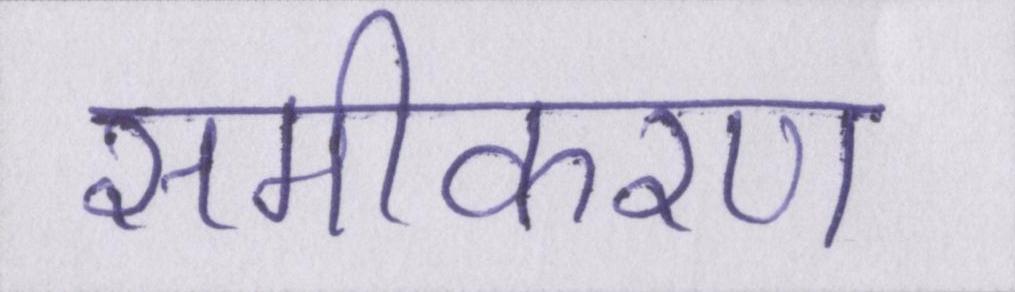 समीकरण